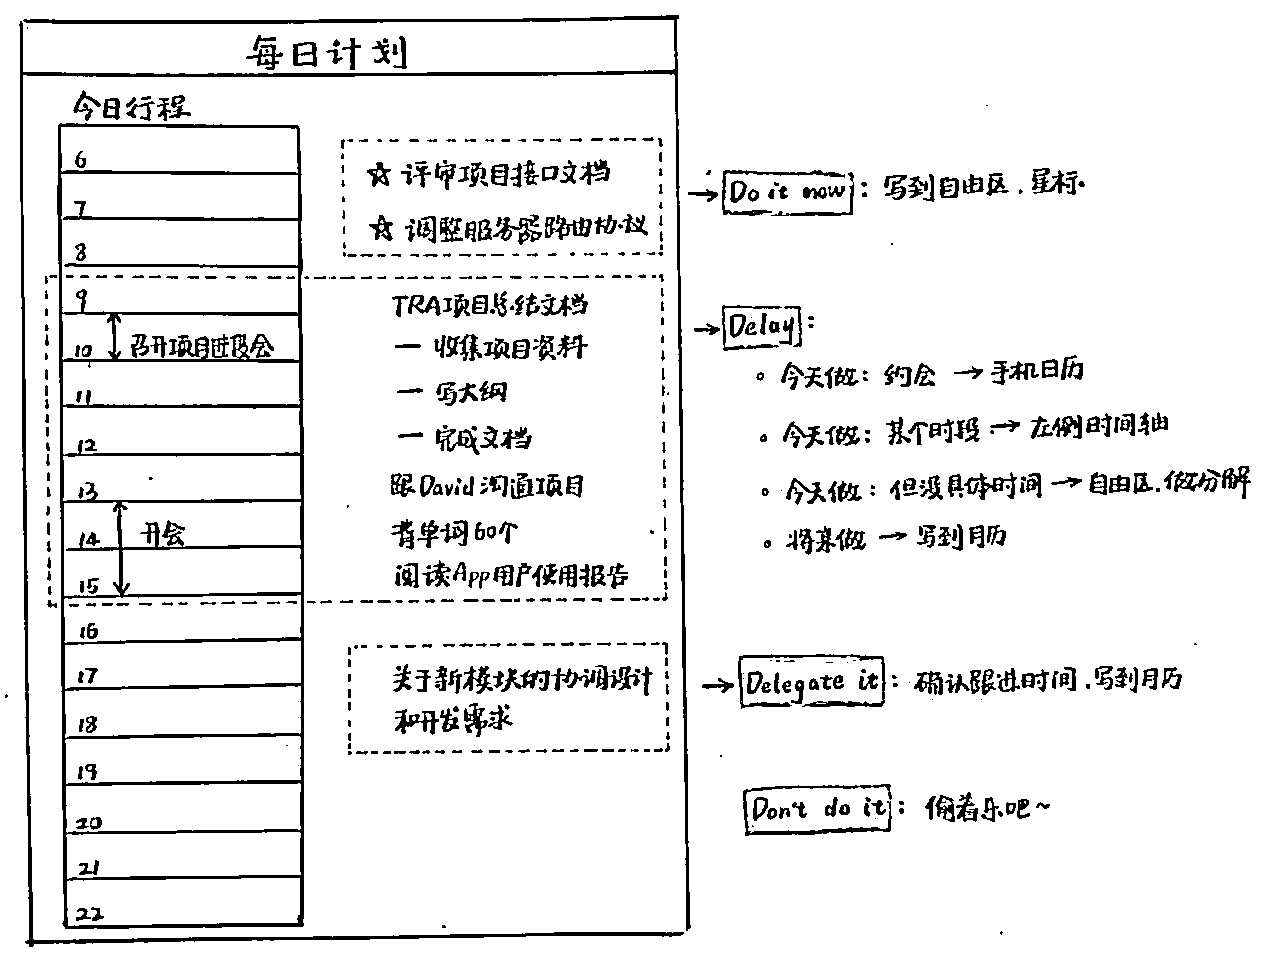 每日计划
今日行程
6
7
8
9
10 召开项目进段会
11
12
13
14 开会
15
16
17
18
19
20
21
22
☆ 评审项目接口文档
☆ 调整服务器路由协议
TRA项目总结文档
— 收集项目资料
— 写大纲
— 完成文档
跟David沟通项目
背单词60个
阅读App用户使用报告
关于新模块的协调设计
和开发需求
→ Do it now : 写到自由区,星标.
→ Delay :
。今天做: 约会 → 手机日历
。今天做: 某个时段 → 左侧时间轴
。今天做: 但没具体时间 → 自由区,做分解
。将来做 → 写到月历
→ Delegate it : 确认跟进时间,写到月历
Don't do it : 偷着乐吧~